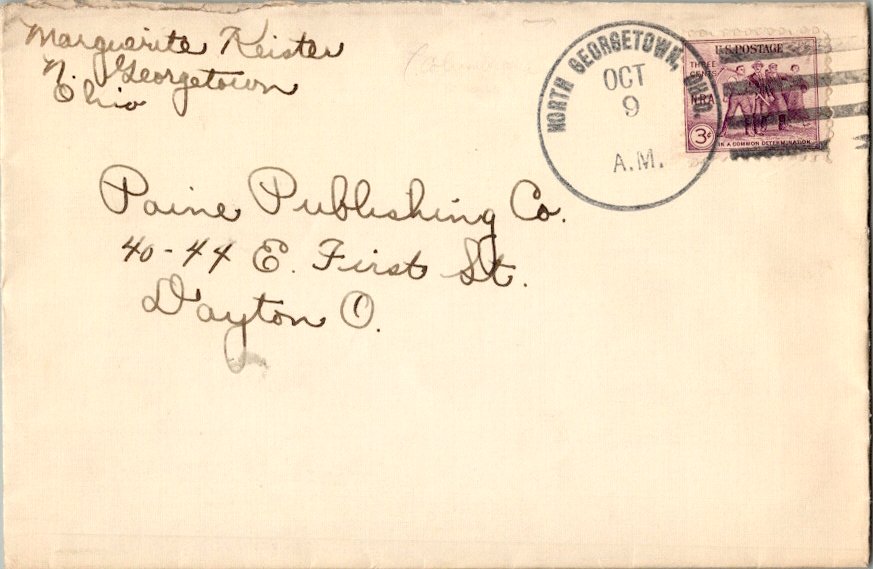 Marguerite Keister
N. Georgetown
Ohio
NORTH GEORGETOWN, OHIO.
OCT
9
A.M.
U.S. POSTAGE
THREE
CENTS
NRA
3¢
IN A COMMON DETERMINATION
Paine Publishing Co.
40-44 E. First St.
Dayton O.